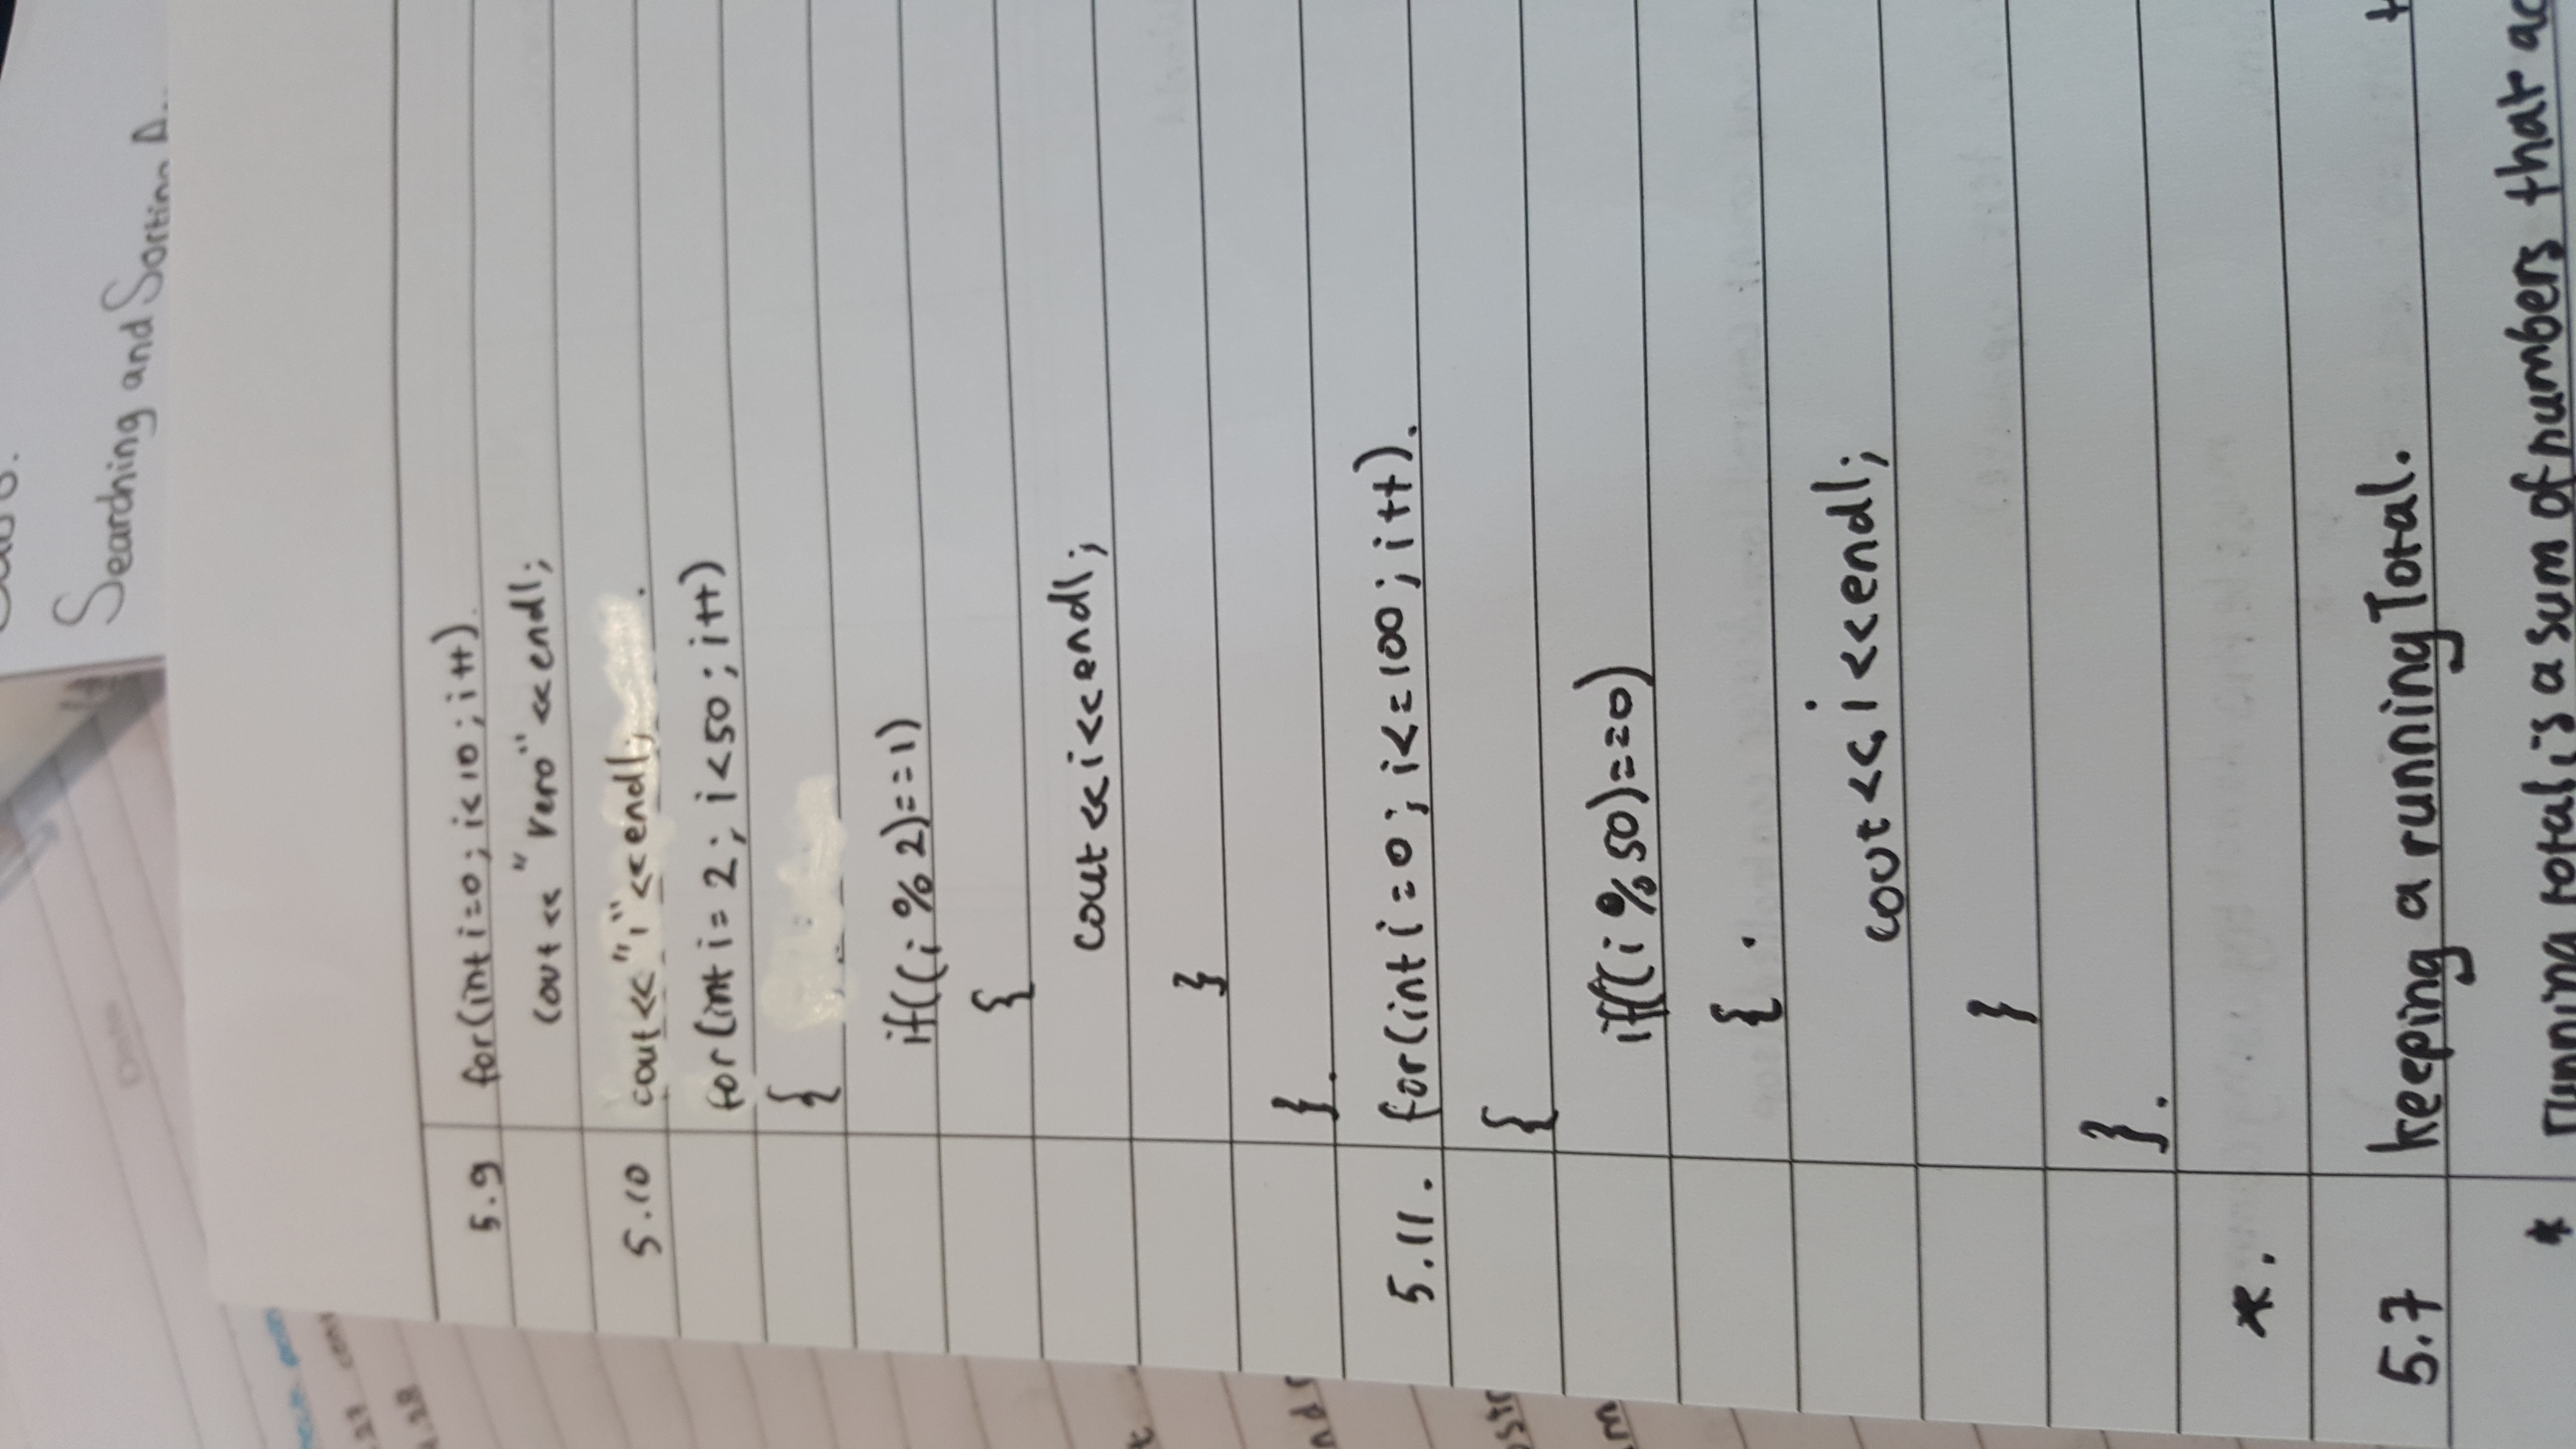 Searching and Sorting A
5.9 for(int i=0; i<10; i++).
cout << "Vero" << endl;
5.10 cout<<"1"<<endl;
for(int i= 2; i<50; i++)
{
if((i % 2)==1)
{
cout<<i<<endl;
}
}.
5.11. for(int i=0; i<=100; i++).
{
if((i % 50)==0)
{ .
cout<<i<<endl;
}
}.
*.
5.7 keeping a running Total.
* running total is a sum of numbers that ac
Date
.27
4.28